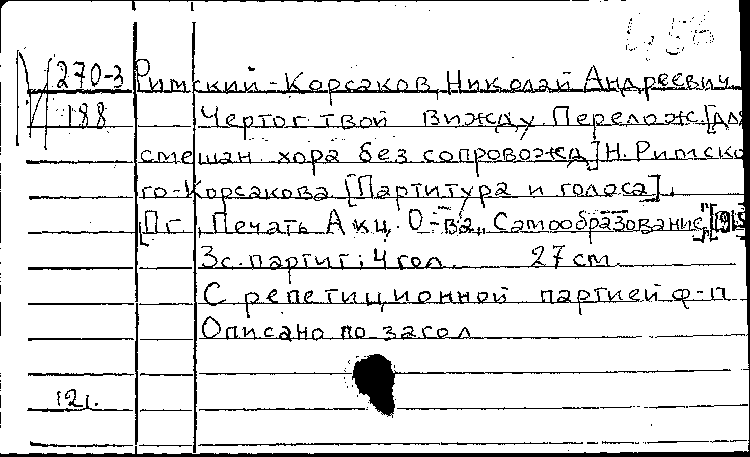 4,56
270-3 Римский-Корсаков, Николай Андреевич.
188 Чертог твой вижду. Перелож. [для
смешан. хора без сопровожд.] Н. Римско
го-Корсакова [Партитура и голоса].
[Пг., Печать Акц. О-ва „Самообразование",
3с. партит; 4 гол. 27 см.
С репетиционной партией ф-п
Описано по загол
121.